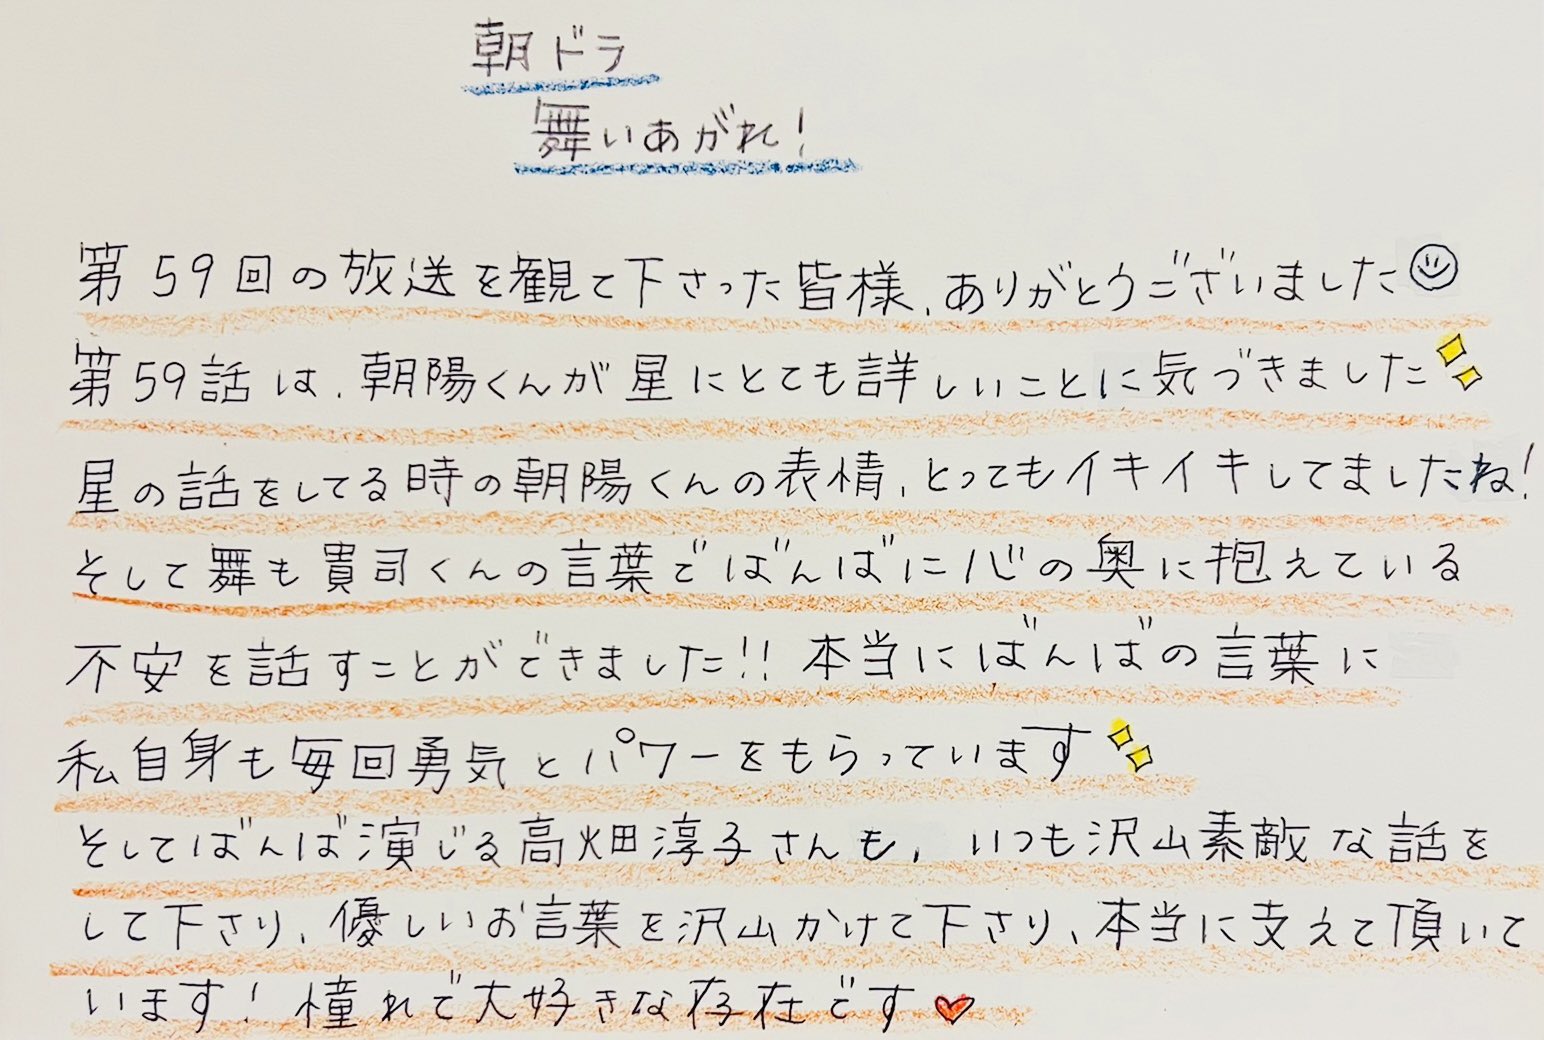 朝ドラ
舞いあがれ!
第59回の放送を観て下さった皆様、ありがとうございました
第59話は、朝陽くんが星にとても詳しいことに気づきました
星の話をしてる時の朝陽くんの表情、とってもイキイキしてましたね!
そして舞も貴司くんの言葉でばんばに心の奥に抱えている
不安を話すことができました!! 本当にばんばの言葉に
私自身も毎回勇気とパワーをもらっています
そしてばんば演じる高畑淳子さんも、いつも沢山素敵な話を
して下さり、優しいお言葉を沢山かけて下さり、本当に支えて頂いて
います! 憧れで大好きな存在です